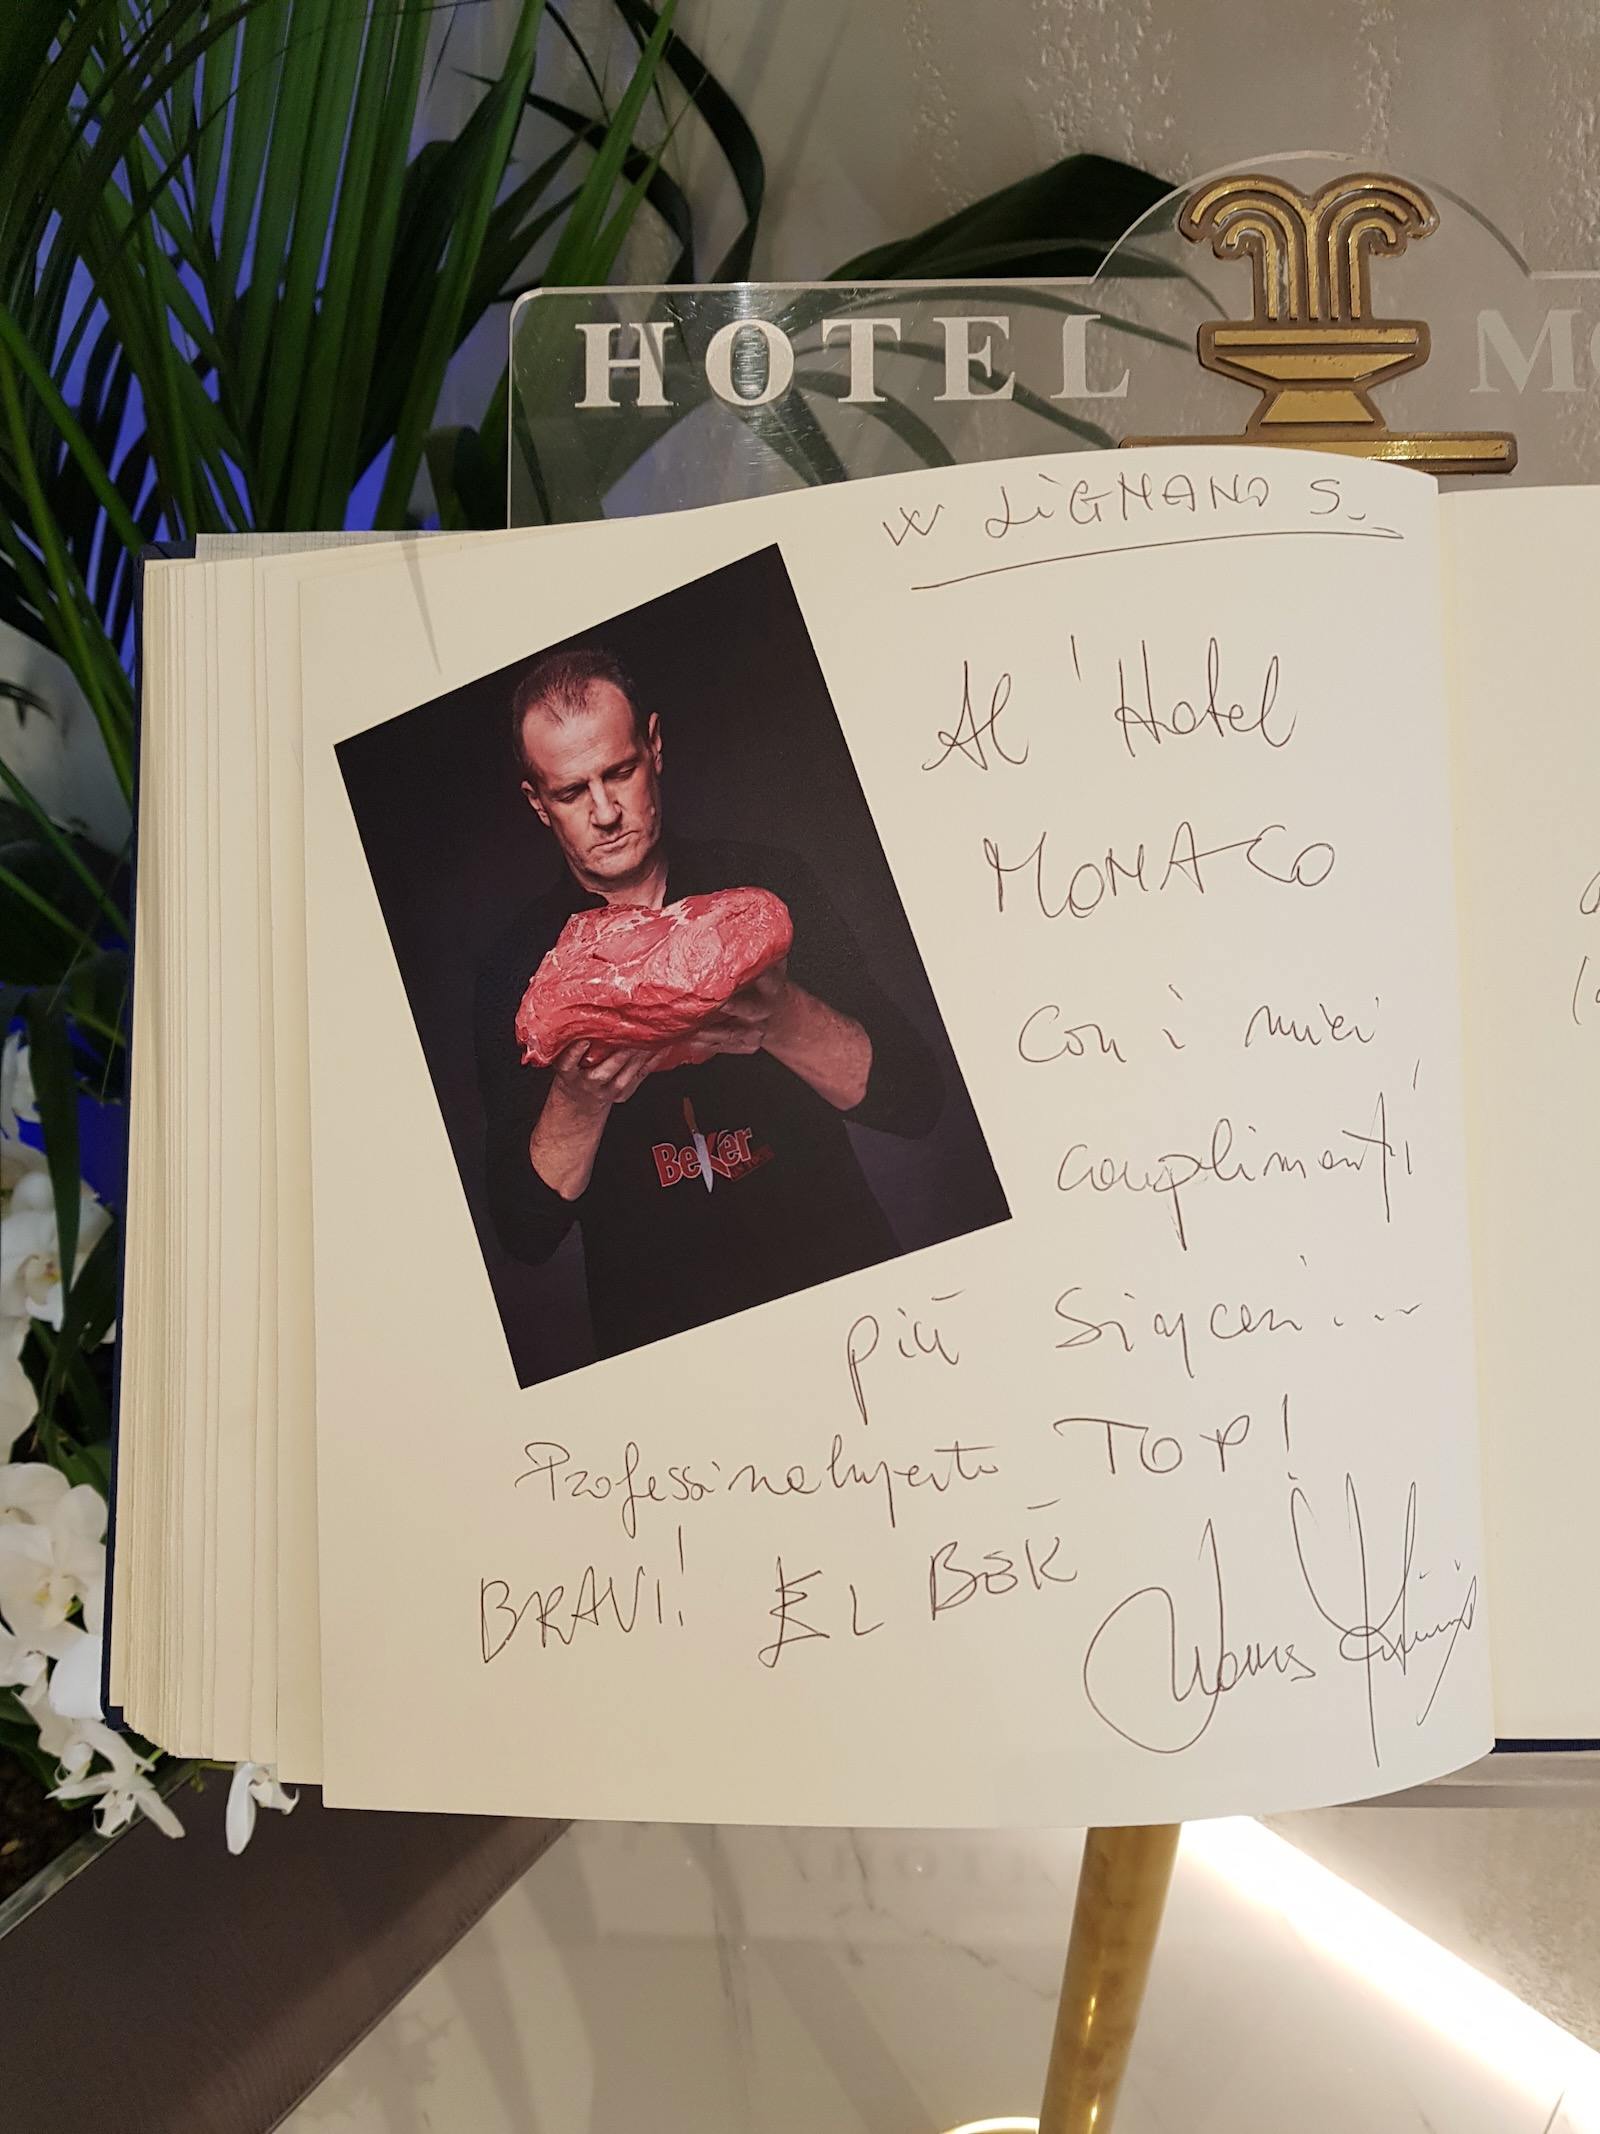 HOTEL
W LiGNANO S.
Al 'Hotel
MONACO
con i miei
complimenti
più sinceri...
Professionalmente TOP!
BRAVI! EL BEK
Beker